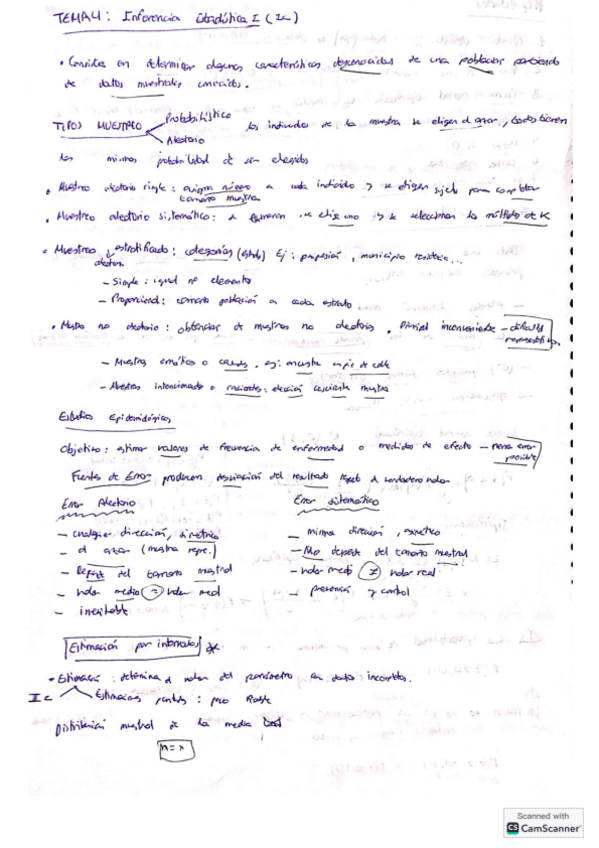 TEMA 4: Inferencia Estadística I (Ic)
• Consiste en determinar algunas características desconocidas de una población partiendo
de datos muestrales conocidos.
TIPOS MUESTREO
Probabilístico
Aleatorio
los individuos de la muestra se eligen al azar, todos tienen
las mismas probabilidad de ser elegidos
• Muestreo aleatorio simple: asigna número a cada individuo y se eligen para completar
tamaño muestra
• Muestreo aleatorio sistemático: se elige uno y se seleccionan los múltiplos de K
• Muestreo estratificado: categorías Ej: profesión, municipio residencia...
aleator.
- Simple: igual nº elemento
- Proporcional: tamaño población a cada estrato
• Mues no aleatorio: obtención de muestras no aleatorias. Principal inconveniente - dificultad
- Muestreo errático o casual, ej: encuesta a pie de calle
- Muestreo intencionado o : elección consciente muestra
Estudios Epidemiológicos
Objetivo: estimar valores de frecuencia de enfermedad o medidas de efecto - menor error
posible
Fuentes de Error producen desviación del resultado respecto al verdadero valor
Error Aleatorio
Error sistemático
- cualquier dirección, simétrico
- misma dirección, asimétrico
- al azar (muestra repre.)
- No depende del tamaño muestral
- Depende del tamaño muestral
- valor medio ≠ valor real
- valor medio = valor real
- prevención y control
- inevitable
Estimación por intervalos *
• Estimación: determina el valor del parámetro en datos incompletos.
Ic
Estimaciones puntual: poco fiable
Distribución muestral de la media
n = x
Scanned with
CS CamScanner